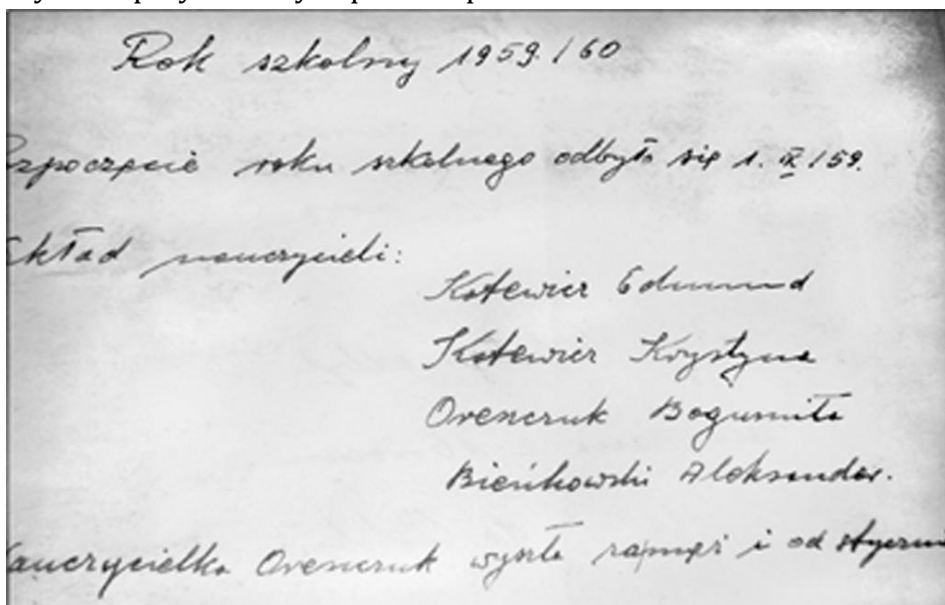 Rok szkolny 1959/60
ozpoczęcie roku szkolnego odbyło się 1. IX/59.
skład nauczycieli:
Kotewicz Edmund
Kotewicz Krystyna
Orenczuk Bogumiła
Bieńkowski Aleksander.
auczycielka Orenczuk wyszła zamąż i od styczni